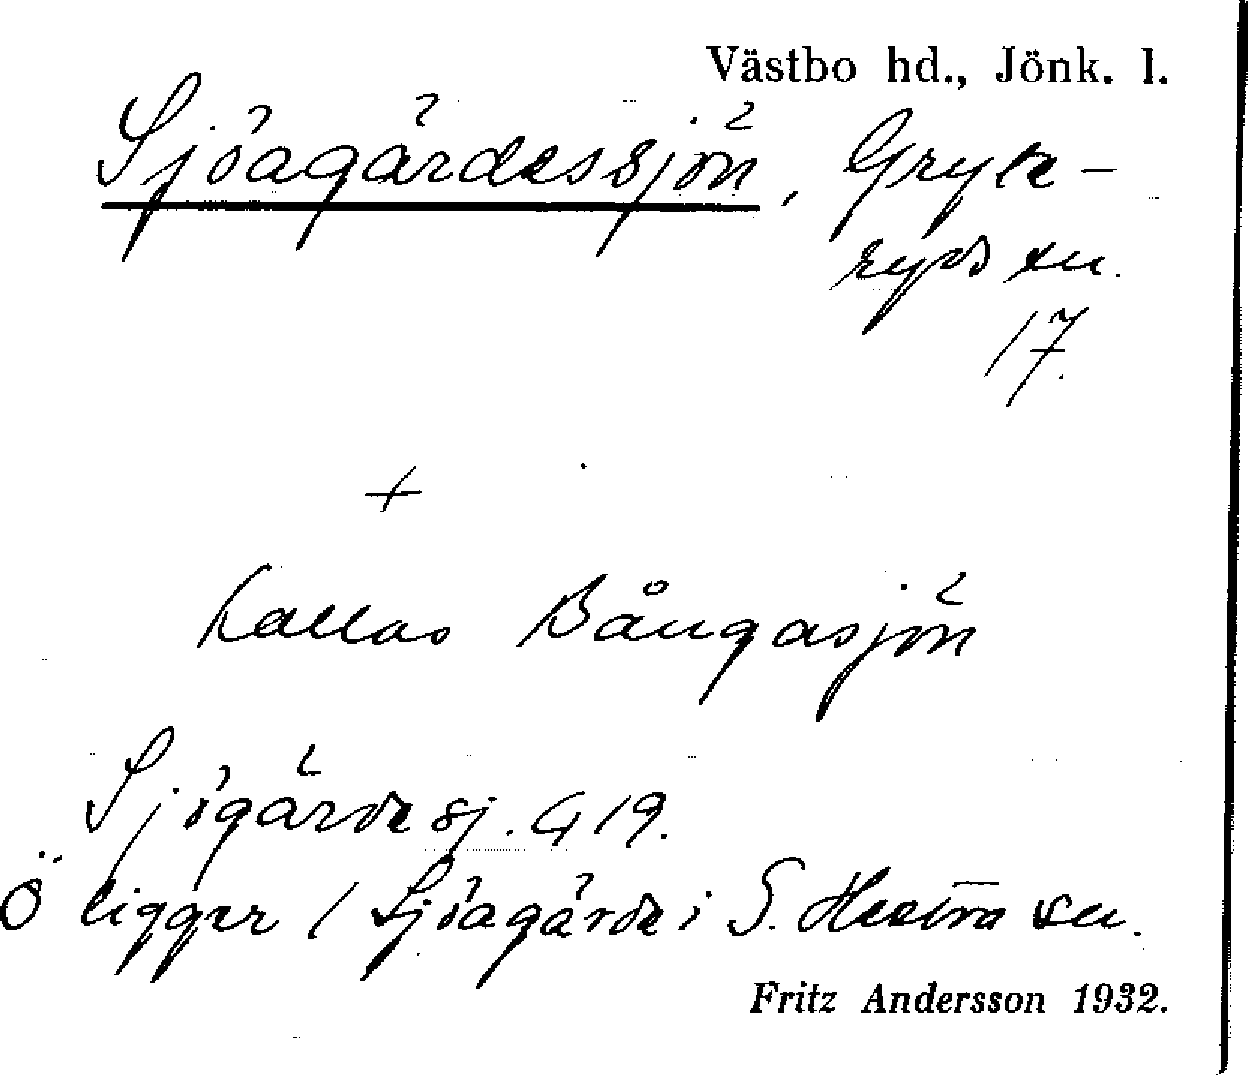 Västbo hd., Jönk. l.
Sjöagärdessjön, Gryte-
ryds sn.
17.
+
Kallas Bångasjön
Sjögärdesj. G 19.
Ö ligger / Sjöagärde i S. Hestra sn.
Fritz Andersson 1932.